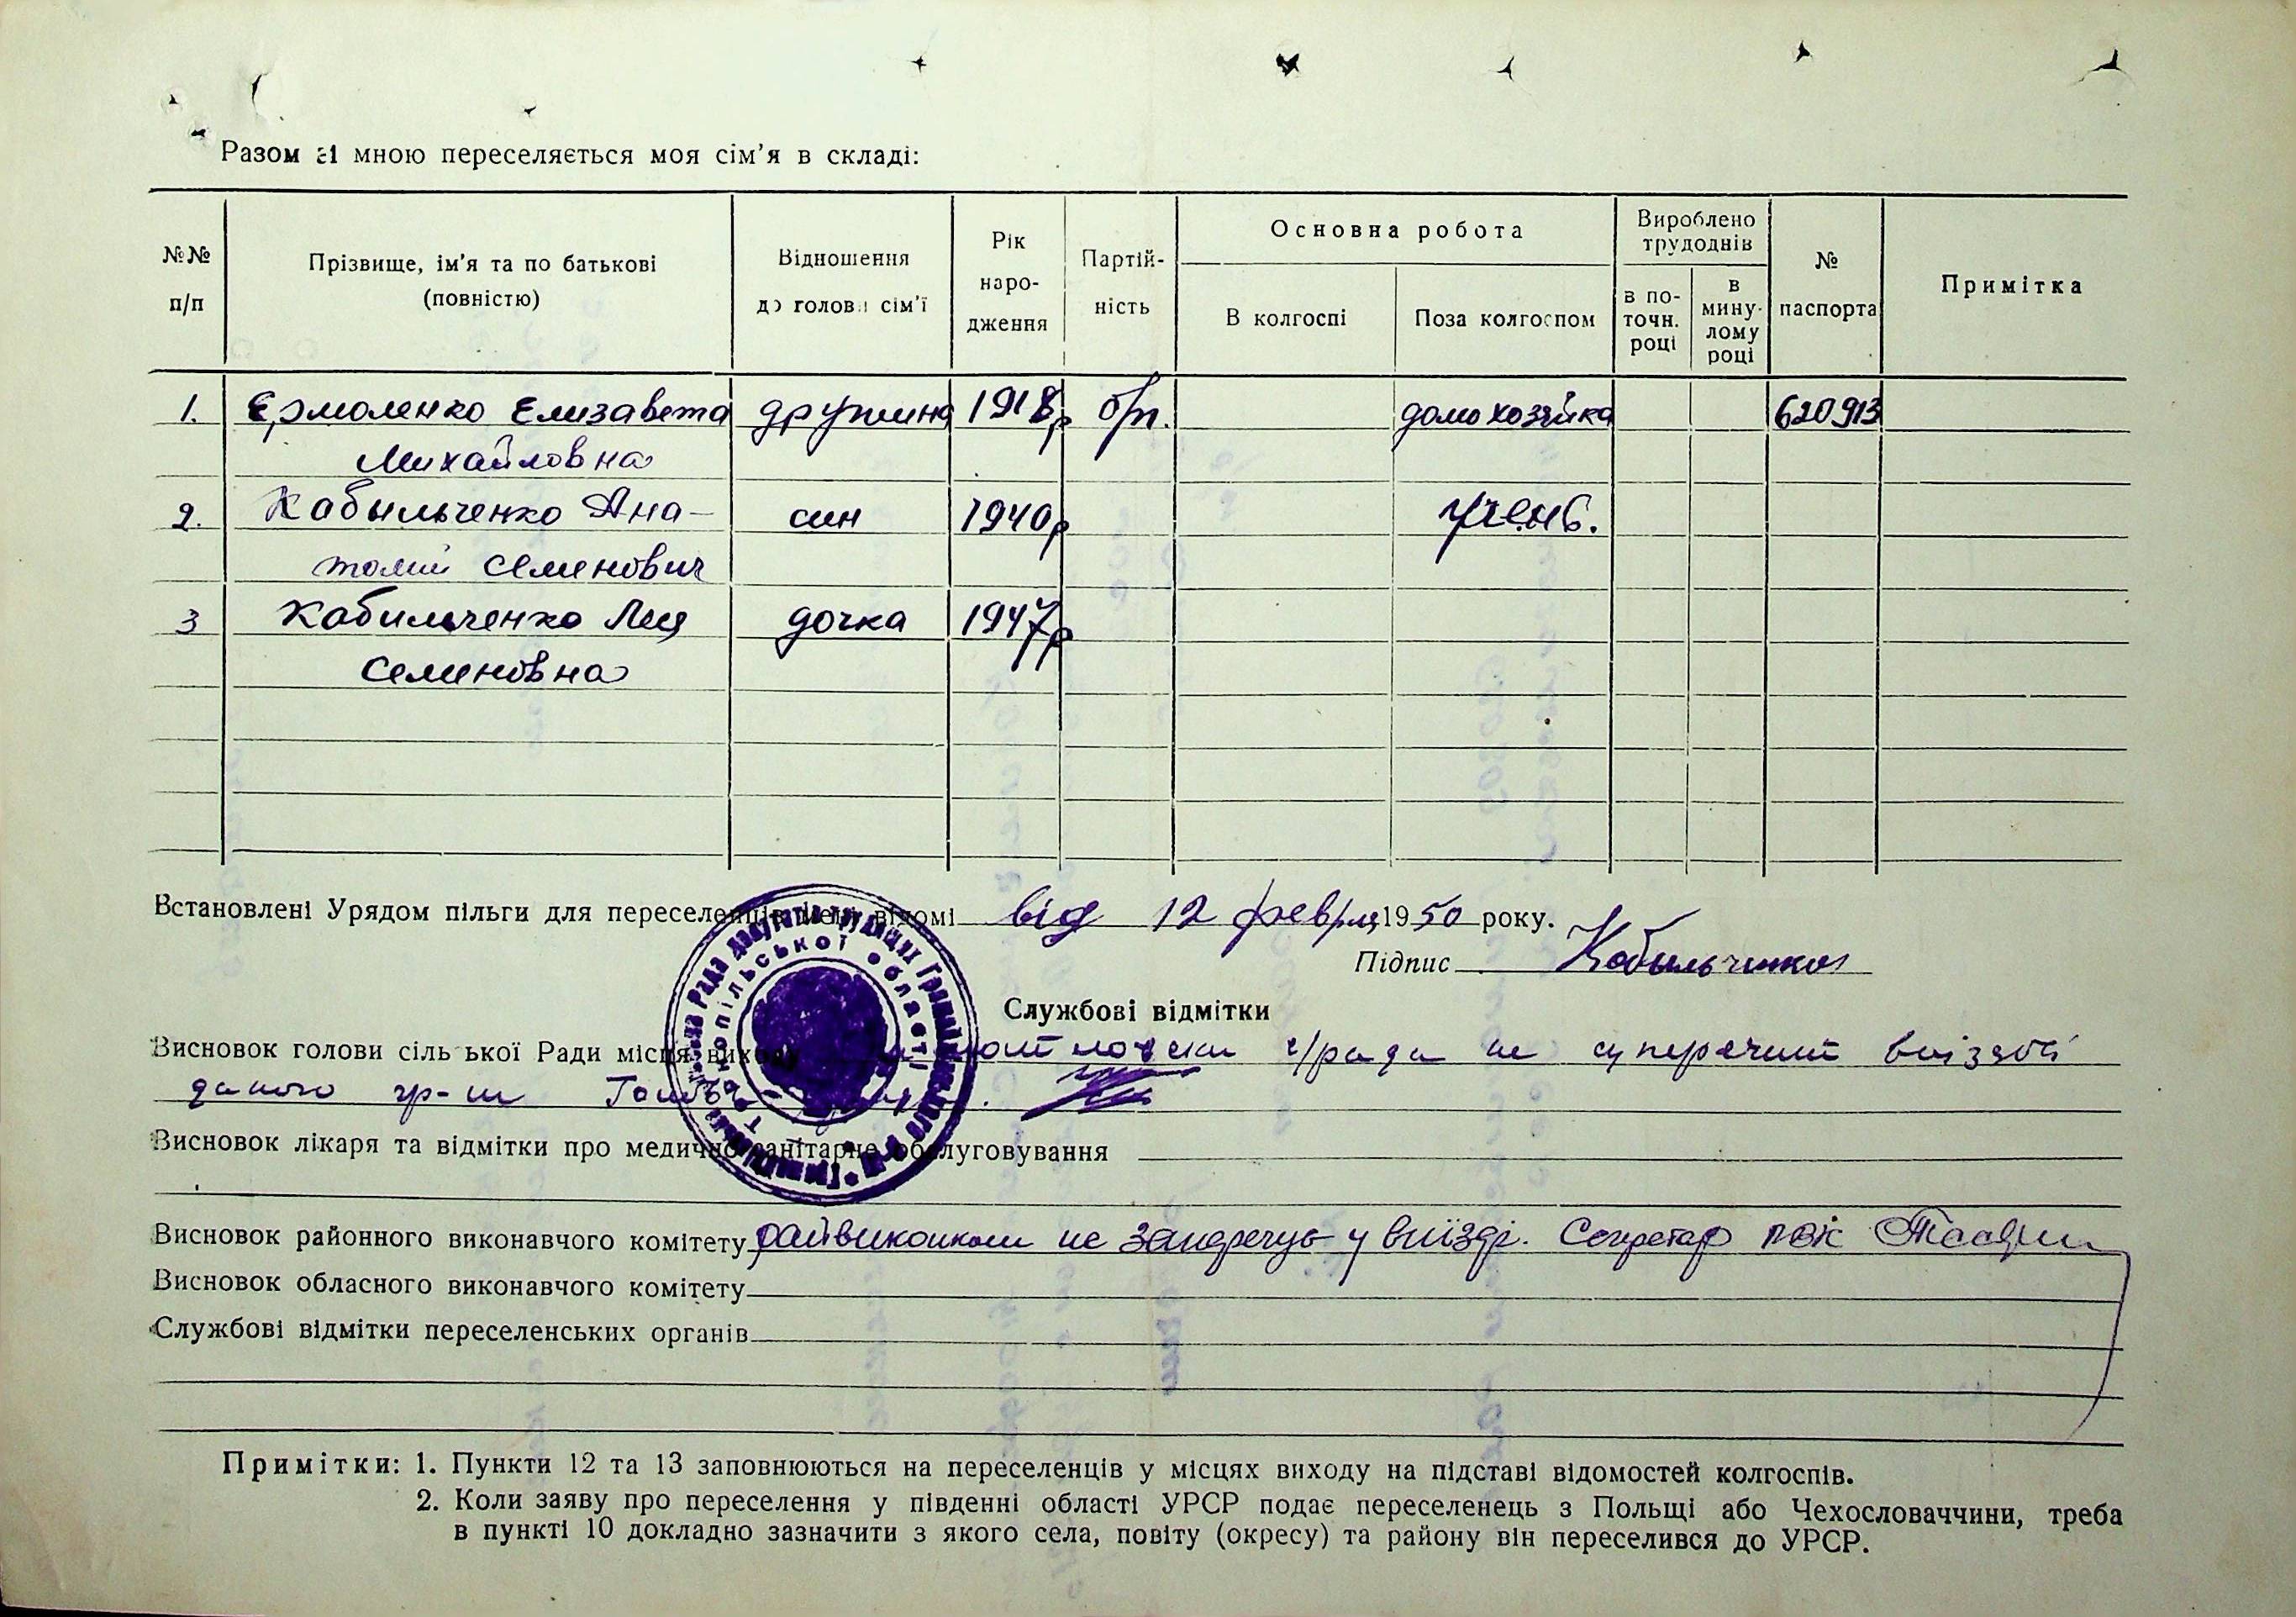 Разом зі мною переселяється моя сім'я в складі:
№№ п/п
Прізвище, ім'я та по батькові (повністю)
Відношення до голови сім'ї
Рік народження
Партійність
Основна робота
В колгоспі
Поза колгоспом
Вироблено трудоднів
в поточн. році
в минулому році
№ паспорта
Примітка
1. Єрмоленко Елизавета дружина 1918р б/п. домохозяйка 620913
Михайловна
2. Кабыльченко Ана- син 1940р учен6.
толий Семенович
3 Кобильченко Лида дочка 1947р
Семеновна
Встановлені Урядом пільги для переселенців мені відомі від 12 февр 1950 року.
Підпис Кобыльченко
Службові відмітки
Висновок голови сільської Ради місця виходу с/рада не суперечит виїздові
даного гр-на
Висновок лікаря та відмітки про медично-санітарне обслуговування
Висновок районного виконавчого комітету райвиконком не заперечує у виїзді. Секретар РВК
Висновок обласного виконавчого комітету
Службові відмітки переселенських органів
Примітки: 1. Пункти 12 та 13 заповнюються на переселенців у місцях виходу на підставі відомостей колгоспів.
2. Коли заяву про переселення у південні області УРСР подає переселенець з Польщі або Чехословаччини, треба
в пункті 10 докладно зазначити з якого села, повіту (окресу) та району він переселився до УРСР.